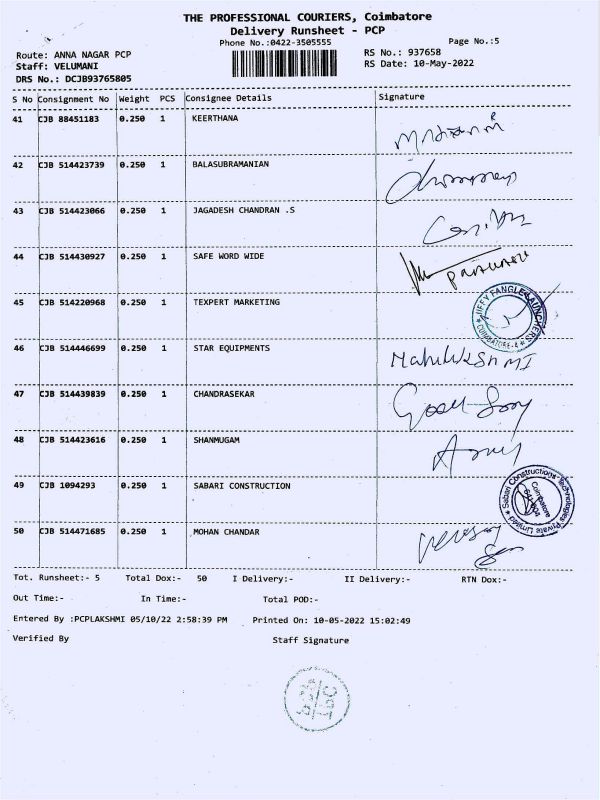 THE PROFESSIONAL COURIERS, Coimbatore
Delivery Runsheet - PCP
Phone No.:0422-3505555
Page No.:5
Route: ANNA NAGAR PCP
RS No.: 937658
Staff: VELUMANI
RS Date: 10-May-2022
DRS No.: DCJB93765805
S No Consignment No Weight PCS Consignee Details Signature
41 CJB 88451183 0.250 1 KEERTHANA
42 CJB 514423739 0.250 1 BALASUBRAMANIAN
43 CJB 514423066 0.250 1 JAGADESH CHANDRAN .S
44 CJB 514430927 0.250 1 SAFE WORD WIDE
45 CJB 514220968 0.250 1 TEXPERT MARKETING
JIFFY FANGLE LAUNCHERS
COIMBATORE-4
46 CJB 514446699 0.250 1 STAR EQUIPMENTS MahaLakShMI
47 CJB 514439839 0.250 1 CHANDRASEKAR
48 CJB 514423616 0.250 1 SHANMUGAM
49 CJB 1094293 0.250 1 SABARI CONSTRUCTION
Sabari Constructions Technologies Private Limited
Coimbatore
50 CJB 514471685 0.250 1 MOHAN CHANDAR
Tot. Runsheet:- 5 Total Dox:- 50 I Delivery:- II Delivery:- RTN Dox:-
Out Time:- In Time:- Total POD:-
Entered By :PCPLAKSHMI 05/10/22 2:58:39 PM Printed On: 10-05-2022 15:02:49
Verified By Staff Signature